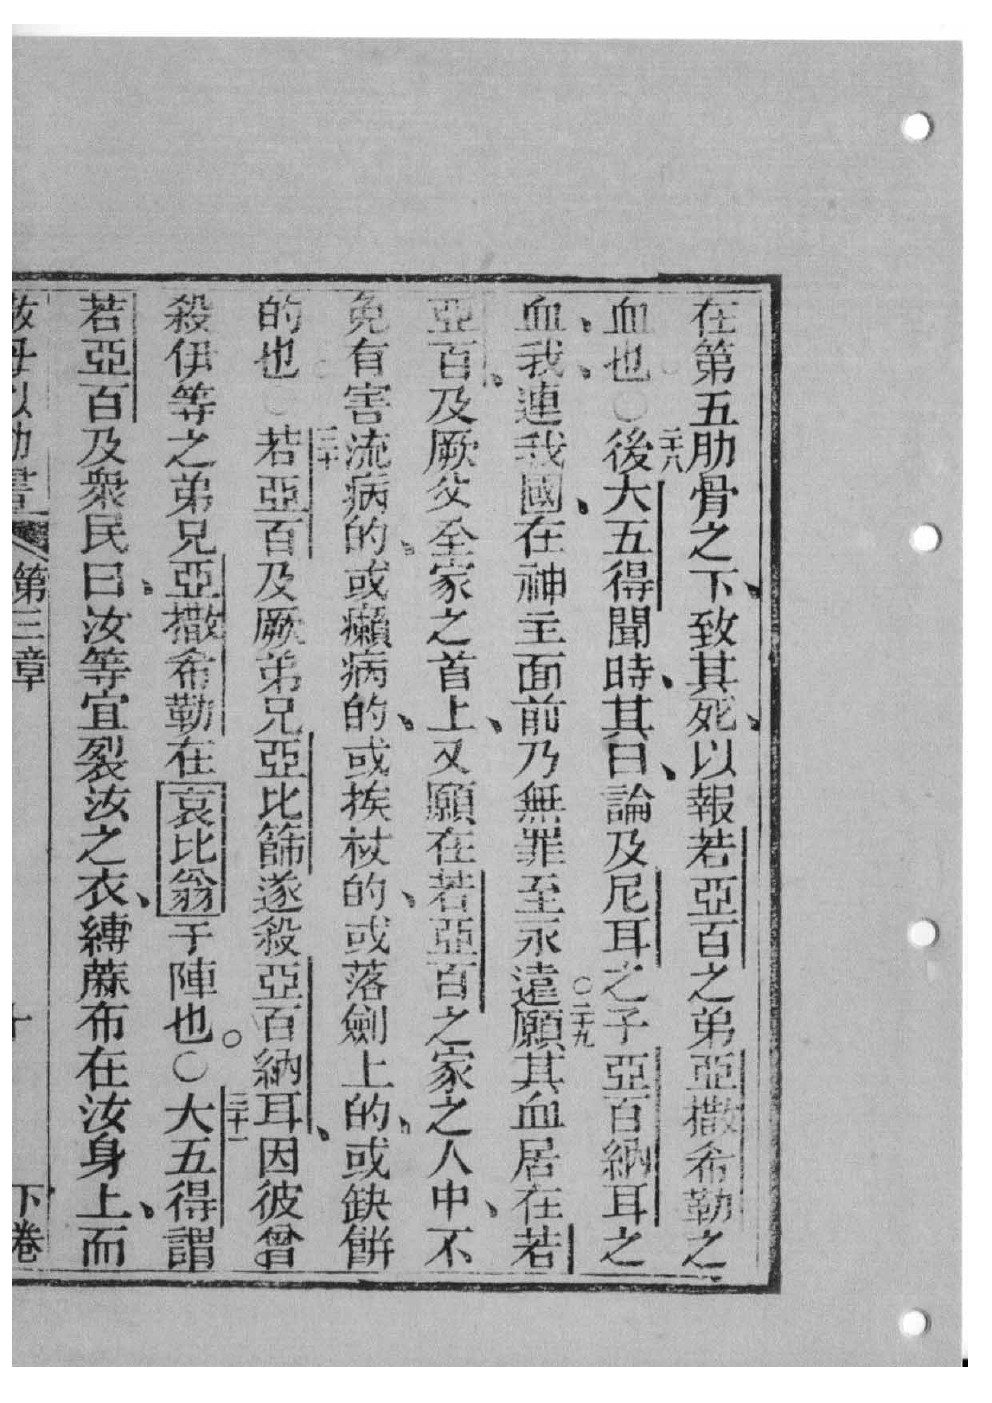 在第五肋骨之下、致其死、以報若亞百之弟亞撒希勒之
血也○二十八後大五得聞時、其曰、論及尼耳之子亞百納耳之
血、我、連我國、在神主面前乃無罪至永遠○二十九願其血居在若
亞百、及厥父全家之首上、又願在若亞百之家之人中、不
免有害流病的、或癩病的、或挨杖的、或落劍上的、或缺餅
的也○三十若亞百及厥弟兄亞比篩遂殺亞百納耳、因彼曾
殺伊等之弟兄亞撒希勒在哀比翁于陣也。○三十一大五得謂
若亞百及衆民曰、汝等宜裂汝之衣、縳蔴布在汝身上、而
第三章 十 下卷